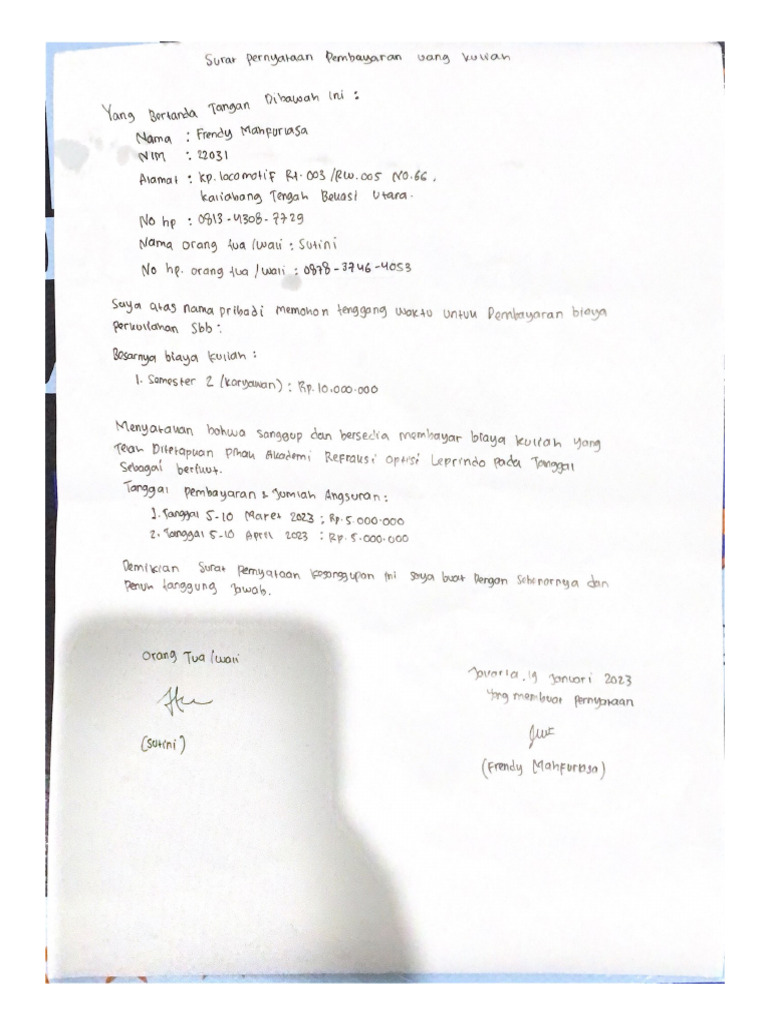 Surat Pernyataan Pembayaran uang kuliah
Yang Bertanda Tangan Dibawah ini :
Nama : Frendy Mahpuriasa
NIM : 22031
Alamat : kp. locomotif Rt. 003 / RW. 005 No. 66,
kaliabang Tengah Bekasi Utara.
No hp : 0813-4308-7729
Nama orang tua / wali : Sutini
No hp. orang tua / wali : 0878-3746-4053
Saya atas nama pribadi memohon tenggang waktu untuk Pembayaran biaya
perkuliahan Sbb :
Besarnya biaya kuliah :
1. Semester 2 (karyawan) : Rp. 10.000.000
Menyatakan bahwa sanggup dan bersedia membayar biaya kuliah yang
Telah Ditetapkan Pihak Akademi Refraksi Optisi Leprindo pada Tanggal
Sebagai berikut.
Tanggal pembayaran & Jumlah Angsuran :
1. Tanggal 5-10 Maret 2023 : Rp. 5.000.000
2. Tanggal 5-10 April 2023 : Rp. 5.000.000
Demikian Surat pernyataan kesanggupan ini saya buat Dengan Sebenarnya dan
Penuh tanggung Jawab.
Orang Tua / wali
(Sutini)
Jakarta, 19 Januari 2023
Yang membuat Pernyataan
(Frendy Mahpuriasa)